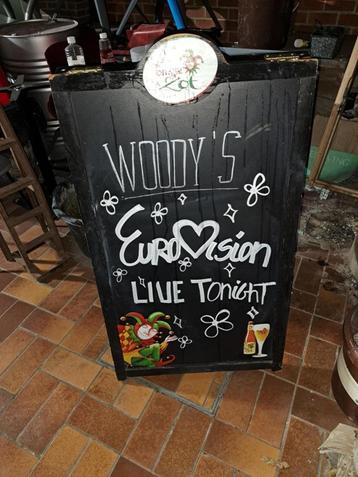 Zot
WOODY'S
EUROVISION
LIVE TONIGHT